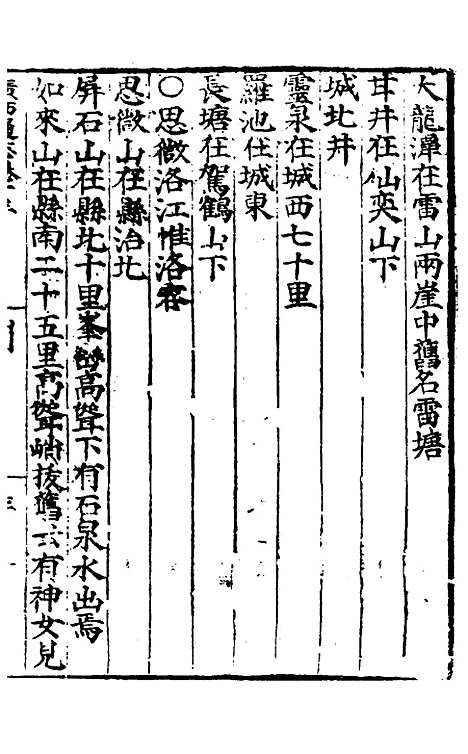 大龍潭在雷山兩崖中舊名雷塘
甘井在仙奕山下
城北井
靈泉在城西七十里
羅池在城東
長塘在駕鶴山下
○思微洛江惟洛容
思微山在縣治北
屏石山在縣北十里峯巒高聳下有石泉水出焉
如來山在縣南二十五里高聳峭拔舊云有神女兒